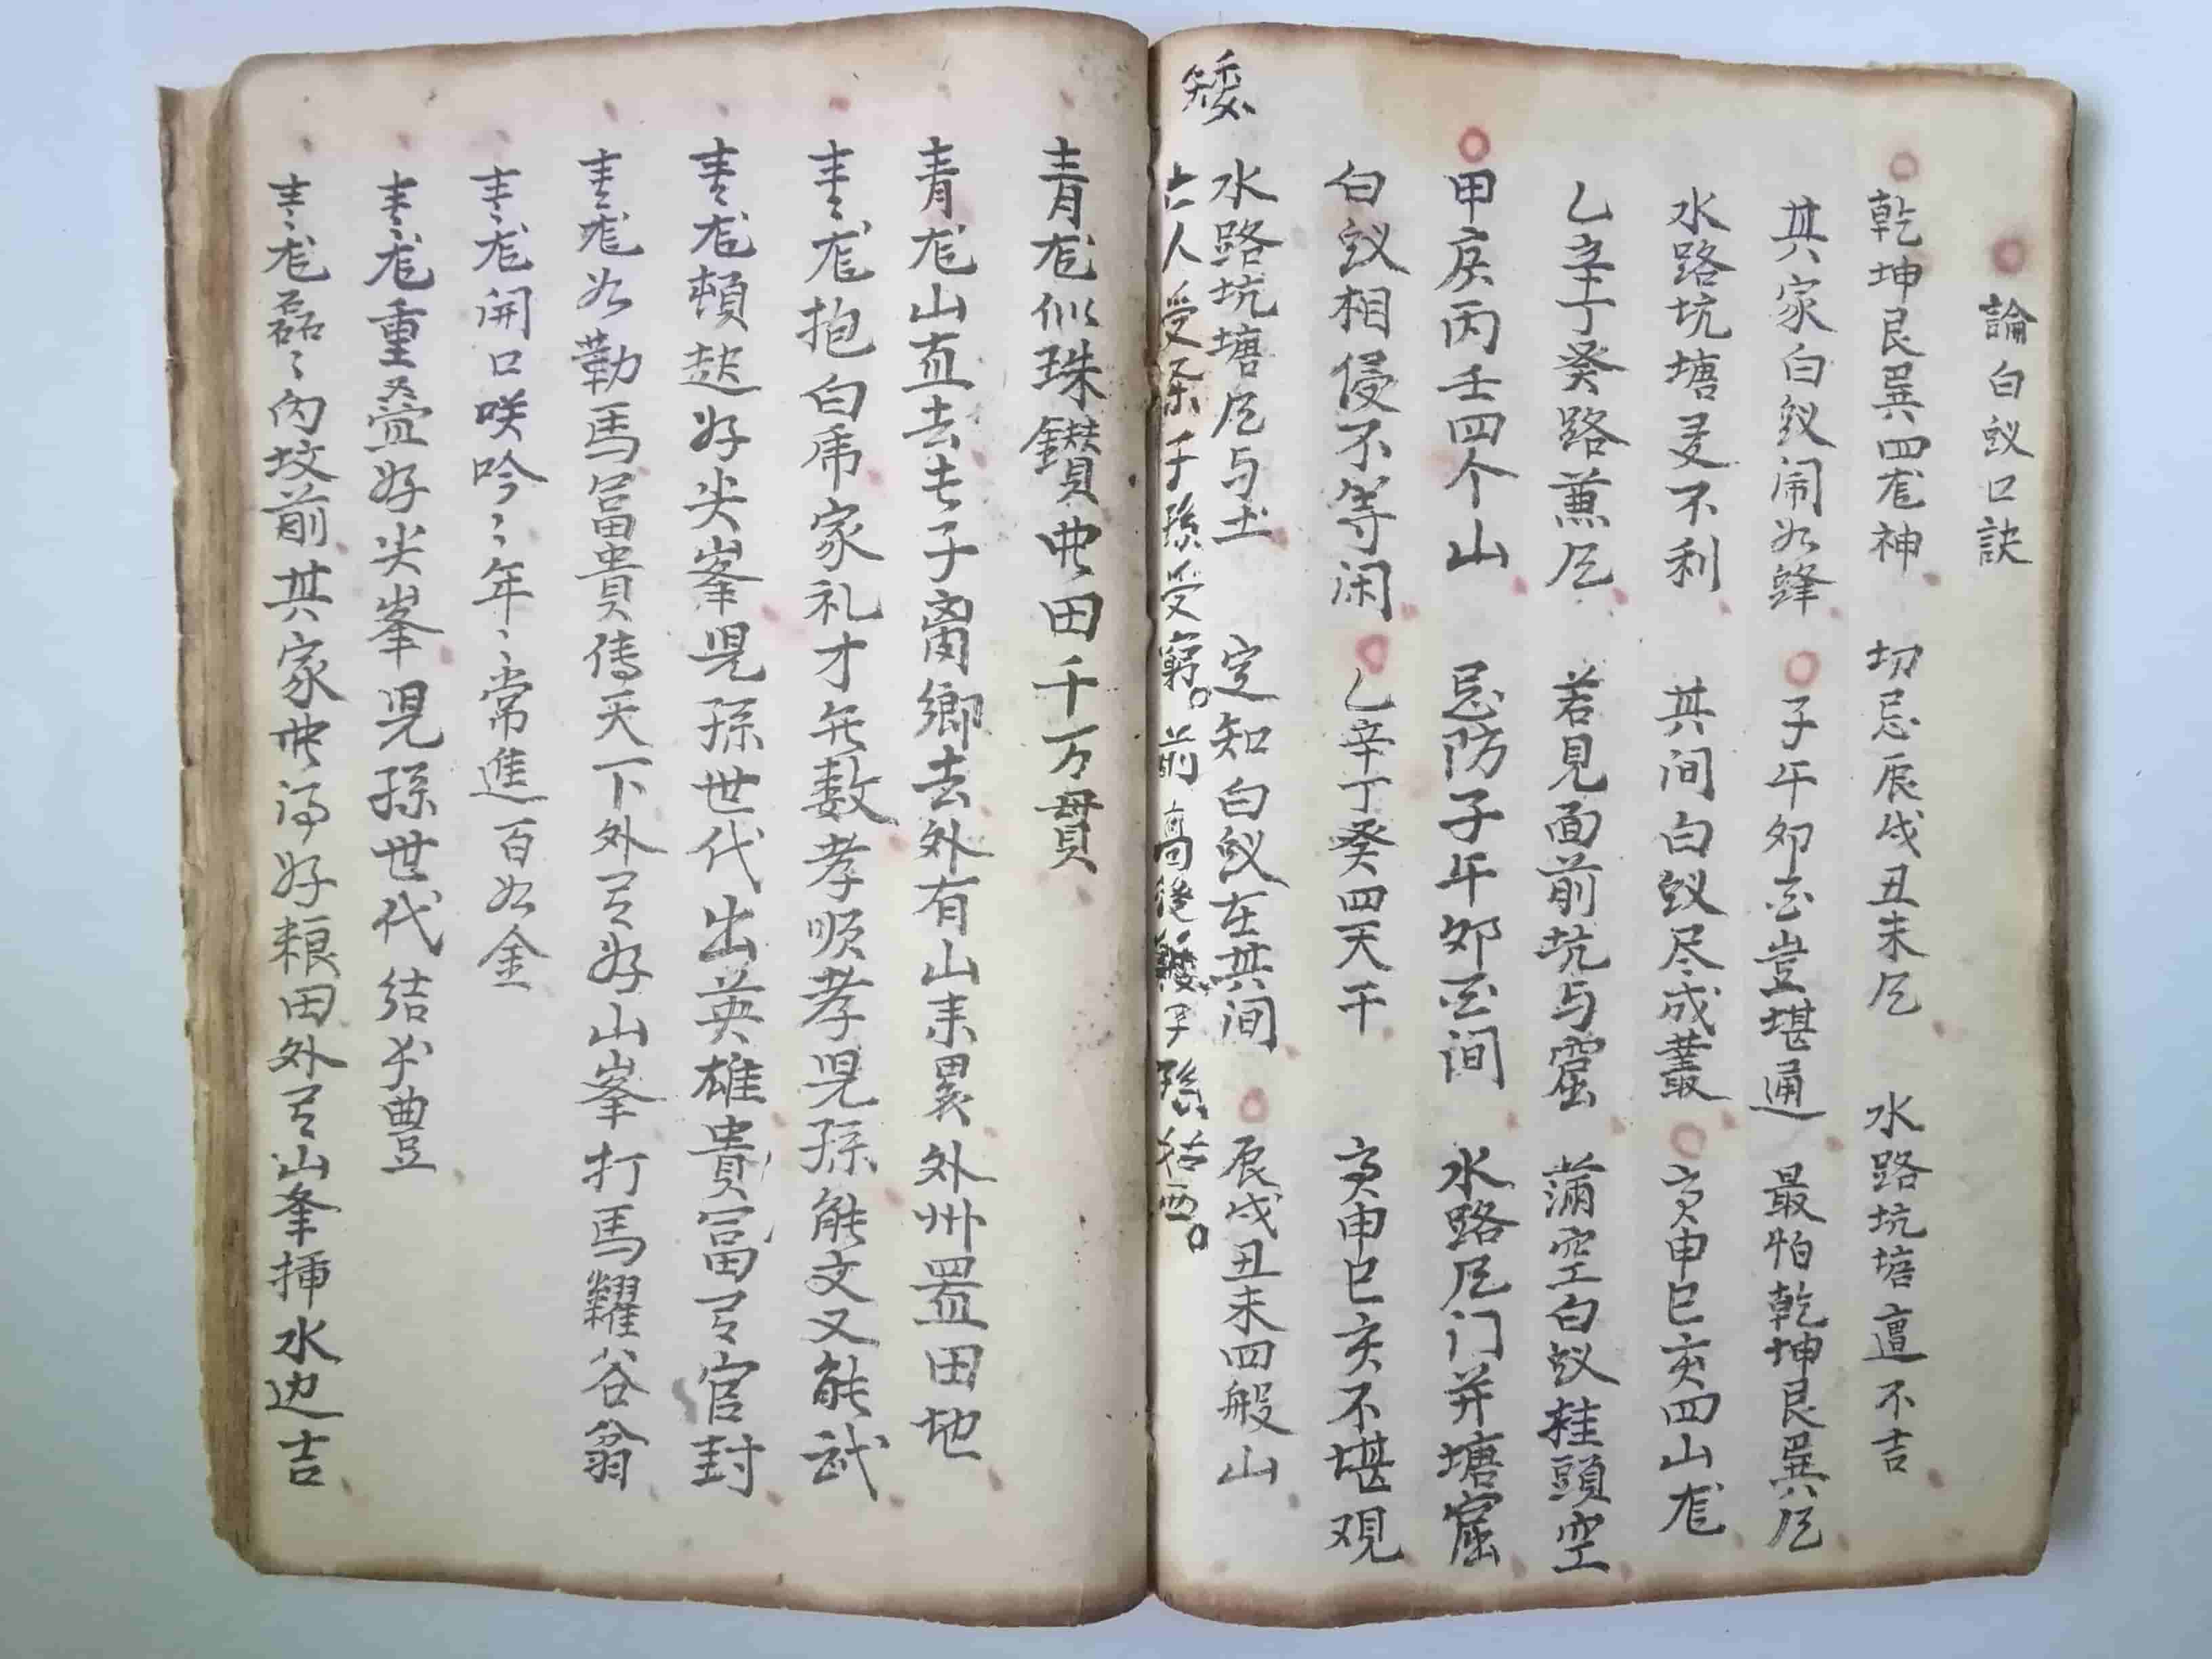 論白蚁口訣
乾坤艮巽四龙神 切忌辰戌丑未凶 水路坑塘㐭不吉
其家白蚁闹如蜂 子午夘酉豈堪通 最怕乾坤艮巽凶
水路坑塘更不利 其间白蚁尽成叢 寅申巳亥四山龙
乙辛丁癸路兼凶 若見面前坑与窟 蒲空白蚁挂頭空
甲庚丙壬四个山 忌防子午夘酉间 水路凶门并塘窟
白蚁相侵不等闲 乙辛丁癸四天干 寅申巳亥不堪观
水路坑塘凶与土 定知白蚁在其间 辰戌丑未四般山
矮
人受 子孫受窮。前高後 子孫 。
青龙似珠鑚典田千万貫
青龙山直去去去子离鄉去外有山来累外州置田地
青龙抱白虎家礼才無数孝順孝児孫能文又能武
青龙頓起好尖峯児孫世代出英雄貴富 官封
青龙如勒馬富貴傳天下外 好山峯打馬糶谷翁
青龙開口咲吟〻年〻常進百如金
青龙重叠好尖峯児孫世代結 豊
青龙磊〻內坟前其家典得好粮田外 山峯挿水边吉